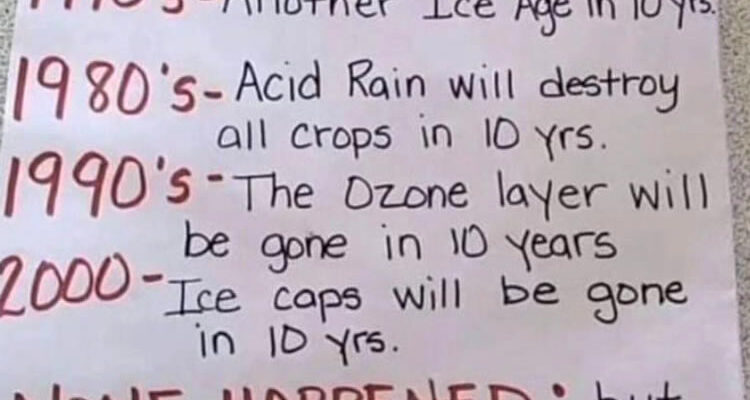 Another Ice Age in 10 yrs.
1980's - Acid Rain will destroy
all crops in 10 yrs.
1990's - The Ozone layer will
be gone in 10 years
2000 - Ice caps will be gone
in 10 yrs.
HAPPENED: but